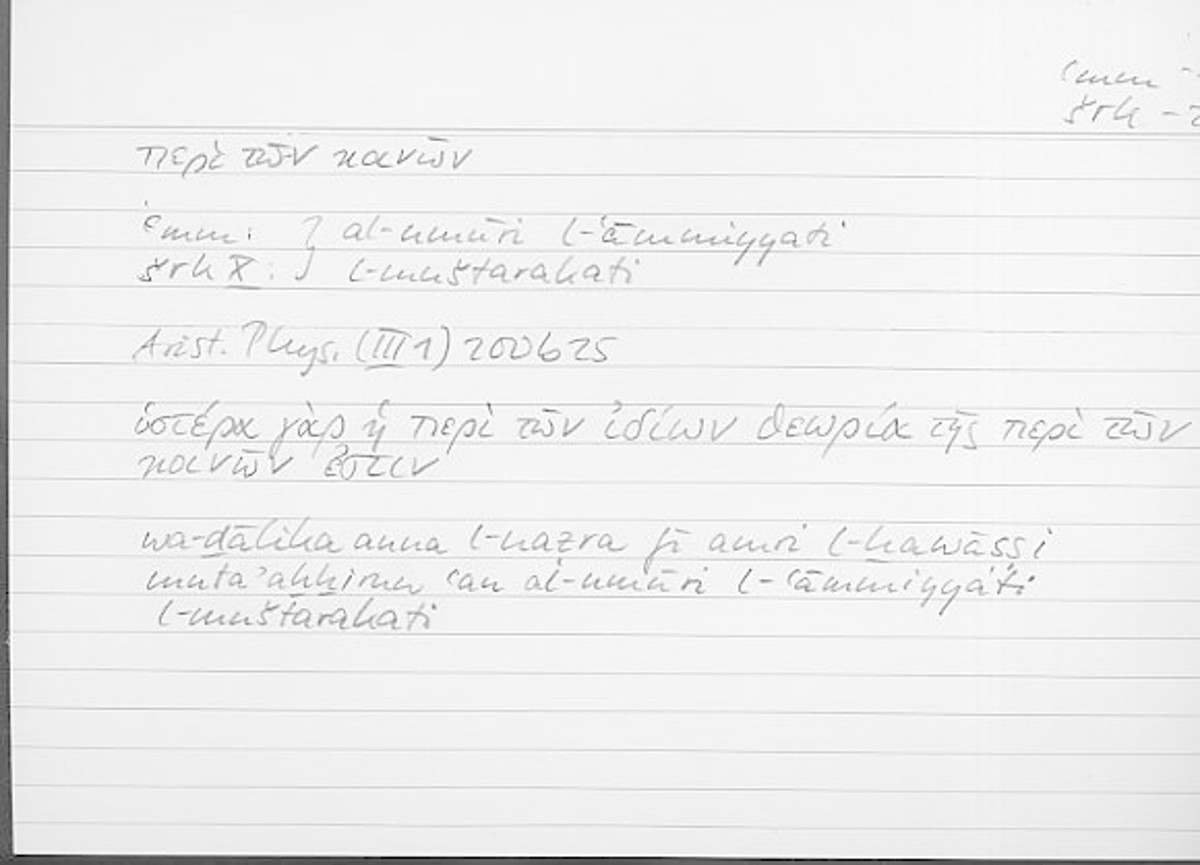 ʿmm
šrk
περὶ τῶν κοινῶν
ʿmm: } al-umūri l-ʿāmmiyyati
šrk X̅: } l-muštarakati
Arist. Phys. (III 1) 200b25
ὑστέρα γὰρ ἡ περὶ τῶν ἰδίων θεωρία τῆς περὶ τῶν
κοινῶν ἐστιν
wa-ḏālika anna l-naẓra fī amri l-ḫawāṣṣi
mutaʾaḫḫirun ʿan al-umūri l-ʿāmmiyyati
l-muštarakati